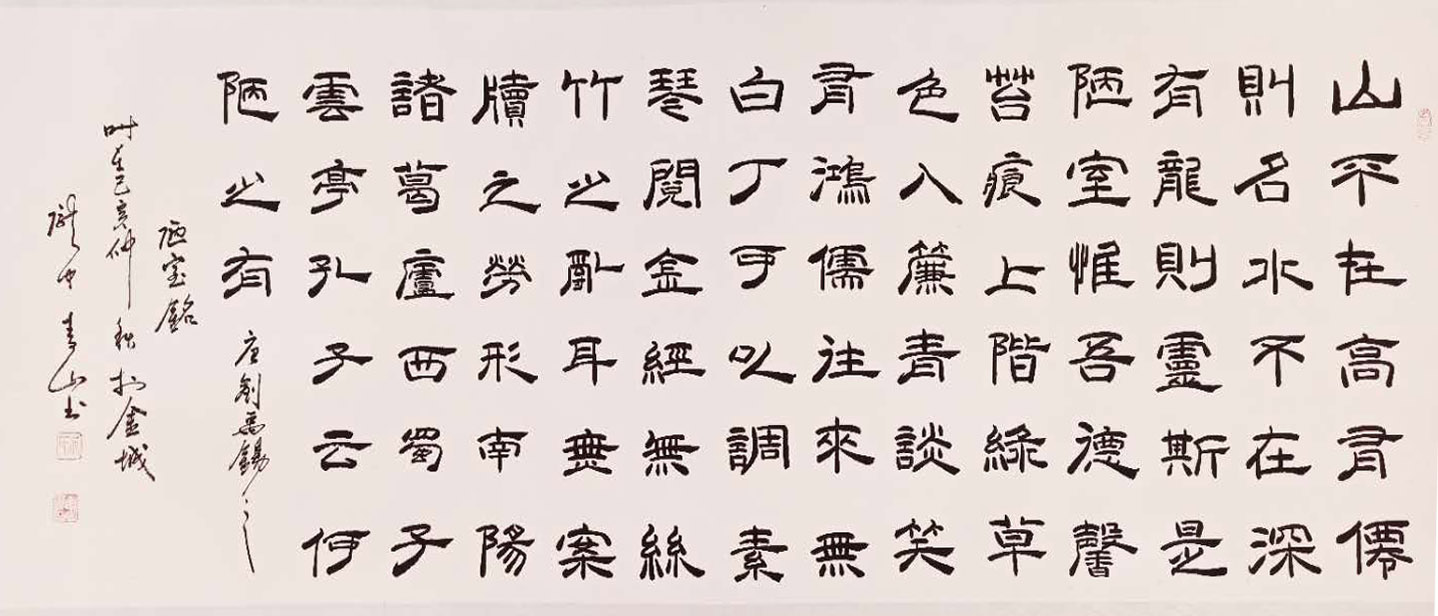 山不在高有僊
則名水不在深
有龍則靈斯是
陋室惟吾德馨
苔痕上階綠草
色入簾青談笑
有鴻儒往來無
白丁可以調素
琴閱金經無絲
竹之亂耳無案
牘之勞形南陽
諸葛廬西蜀子
雲亭孔子云何
陋之有 唐劉禹錫之
陋室銘
時在己亥仲秋於金城
隴中青山书